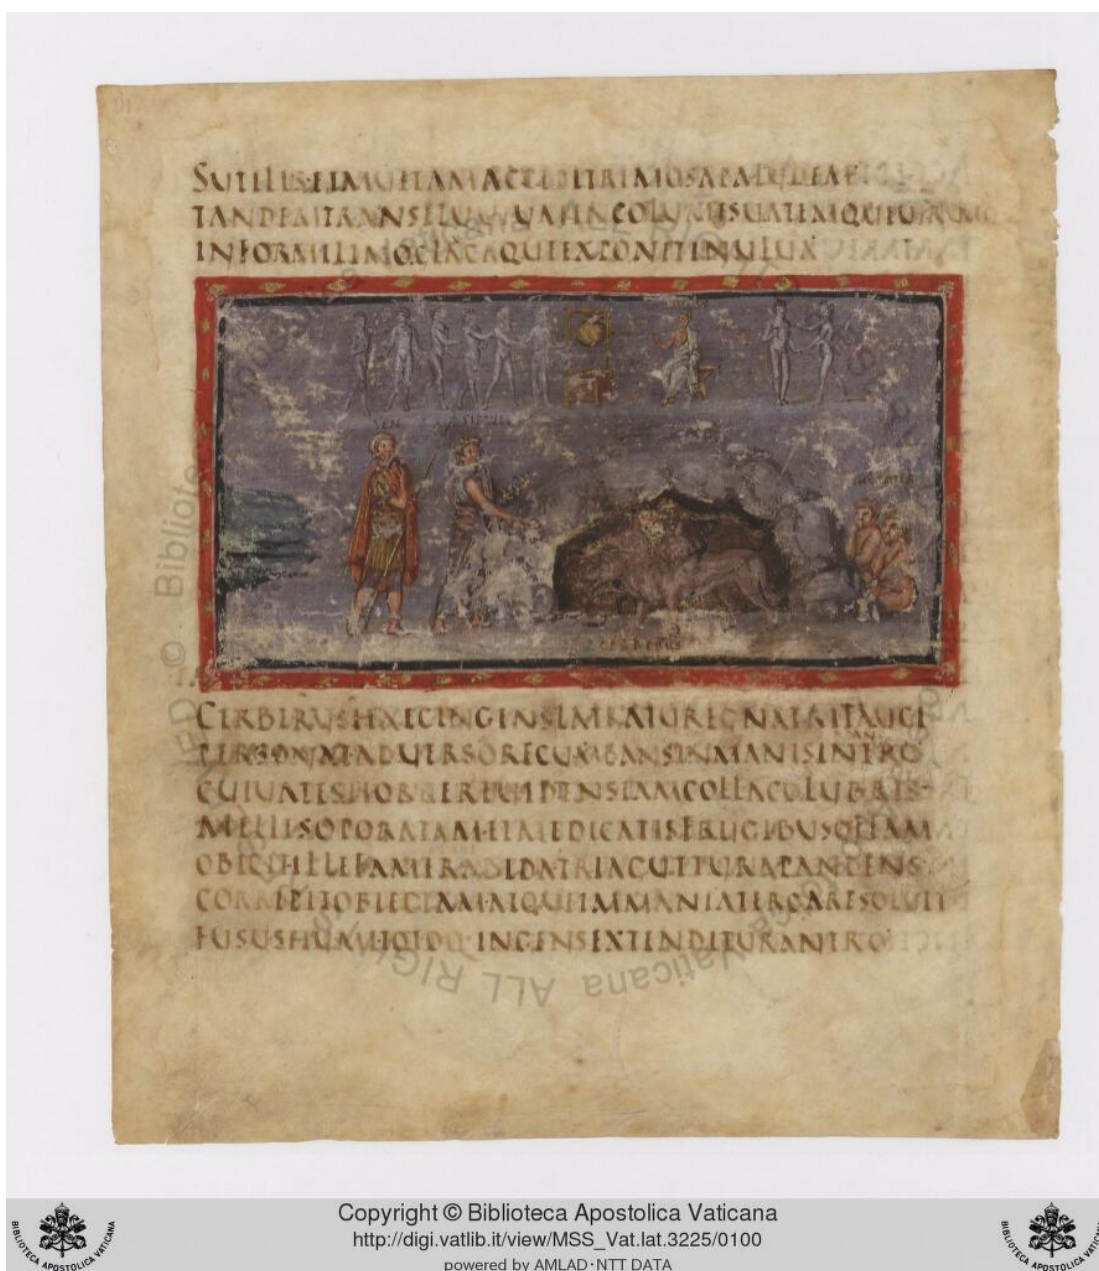 SUTILIS·ETMULTAMACCEPITRIMOSAPALUDEM·
TANDEMTRANSFLUUIUMINCOLUMISUATEMQUEUIRUMQ
INFORMILIMOGLAUCAQUEEXPONITINULUA
AENEAS SIBYLLA
CERBERUS
CERBERUSHAECINGENSLATRATUREGNATRIFAUCI
PERSONATADUERSORECUBANSINMANISINANTRO
CUIUATESHORREREUIDENSIAMCOLLACOLUBRIS·
MELLESOPORATAMETMEDICATISFRUGIBUSOFFAM
OBICITILLEFAMERABIDATRIAGUTTURAPANDENS·
CORRIPITOBIECTAM·ATQUEIMMANIATERGARESOLUIT
FUSUSHUMITOTOQ·INGENSEXTENDITURANTRO
© Biblioteca Apostolica Vaticana ALL RIGHTS RESERVED
BIBLIOTECA APOSTOLICA VATICANA
Copyright © Biblioteca Apostolica Vaticana
http://digi.vatlib.it/view/MSS_Vat.lat.3225/0100
powered by AMLAD·NTT DATA
BIBLIOTECA APOSTOLICA VATICANA